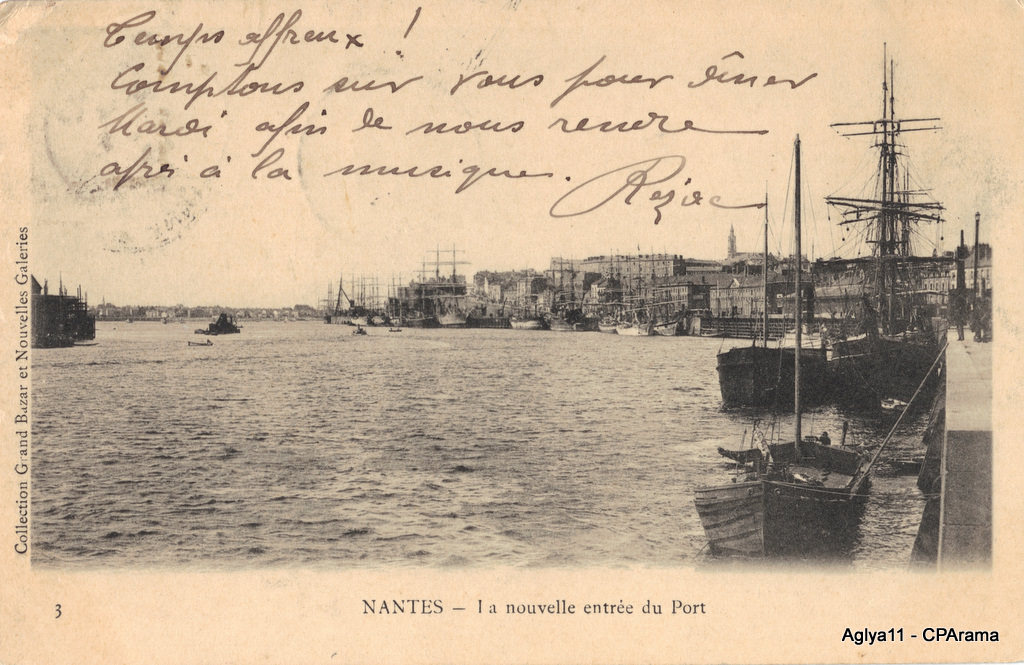 Temps affreux !
Comptons sur vous pour dîner
Mardi afin de nous rendre
après à la musique.
Collection Grand Bazar et Nouvelles Galeries
3
NANTES – La nouvelle entrée du Port
Aglya11 - CPArama